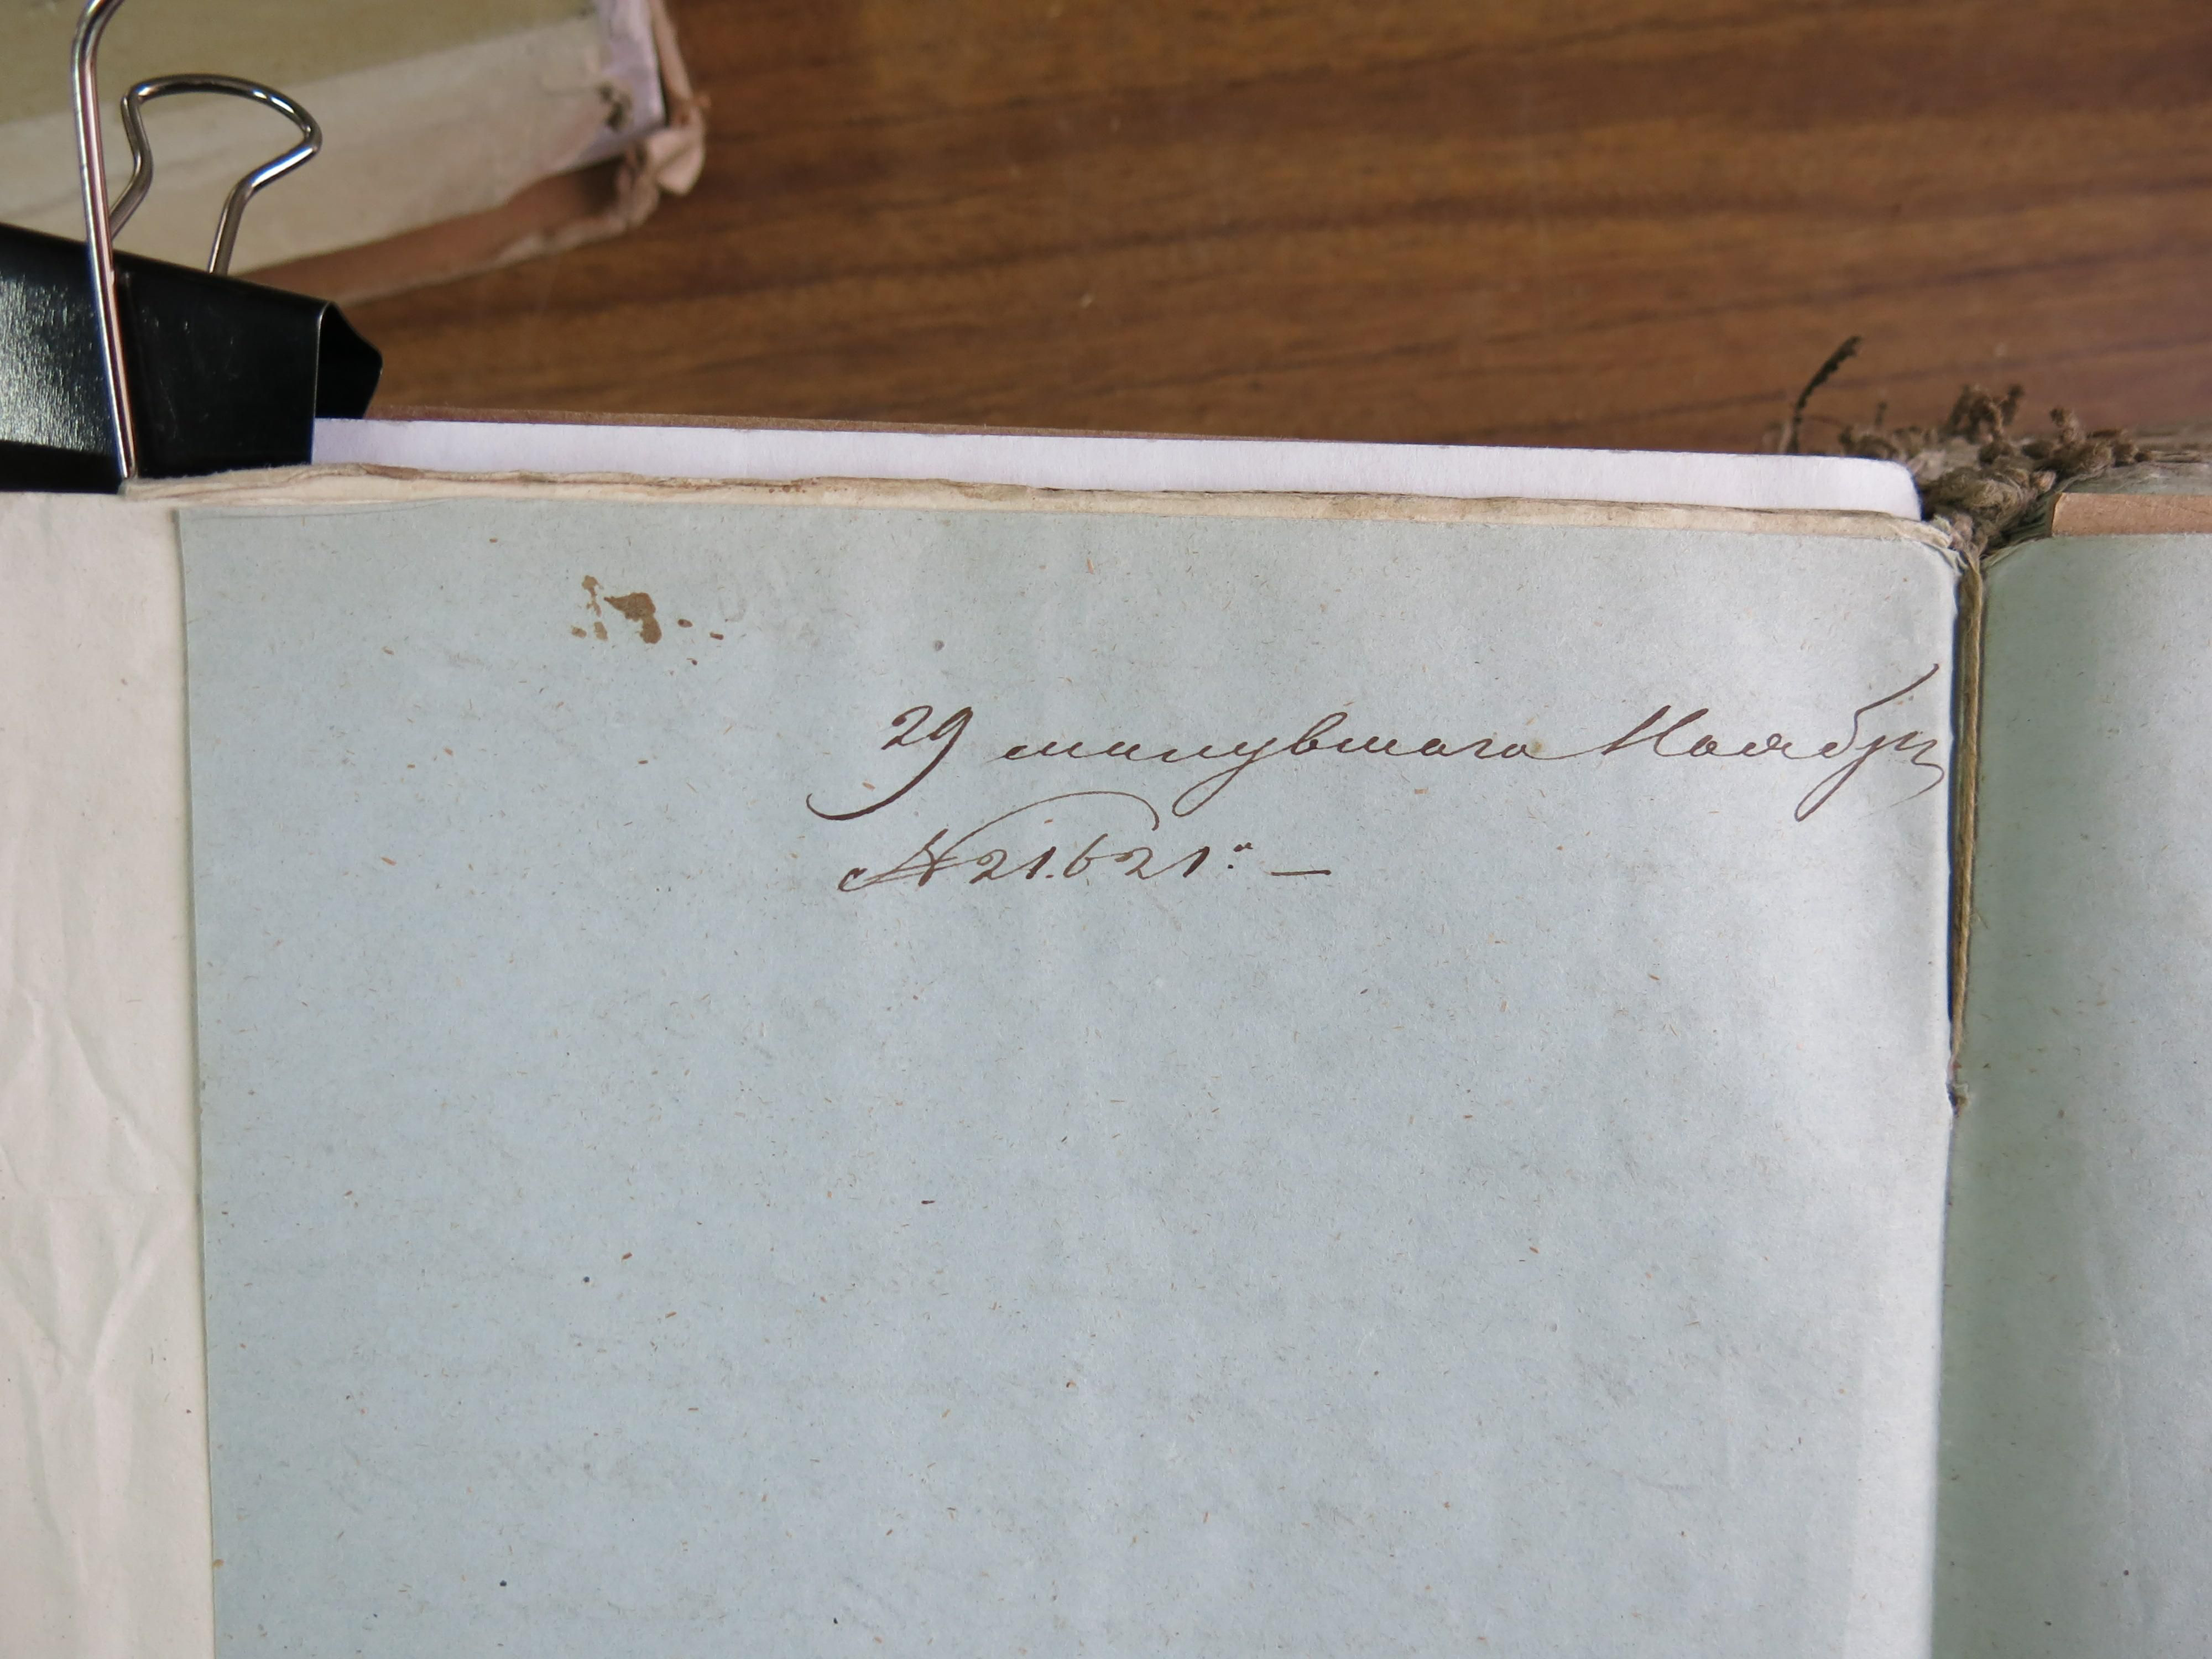 29 минувшаго Ноября
№ 21.621." —